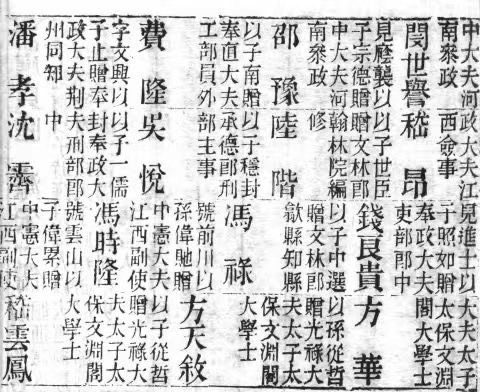 中大夫河
南叅政
閔世譽
見廕襲以
子宗德贈
中大夫河
南叅政
邵豫
以子南贈
奉直大夫
工部員外
費隆
字文興以
子止贈奉
政大夫荆
州同知
潘孝
政大夫江
西僉事
嵇昂
以子世臣
贈文林郎
翰林院編
修
陸階
以子穩封
承德郎刑
部主事
吳悅
以子一儒
封奉政大
夫刑部郎
中
沈霽
見進士以
子照如贈
奉政大夫
吏部郎中
錢良貴
以子中選
贈文林郎
歙縣知縣
馮祿
號前川以
孫偉馳贈
中憲大夫
江西副使
馮時隆
號雲山以
子偉累贈
中憲大夫
江西副使
大夫太子
太保文淵
閣大學士
方華
以孫從哲
贈光祿大
夫太子太
保文淵閣
大學士
方天敘
以子從哲
贈光祿大
夫太子太
保文淵閣
大學士
嵇雲鳳